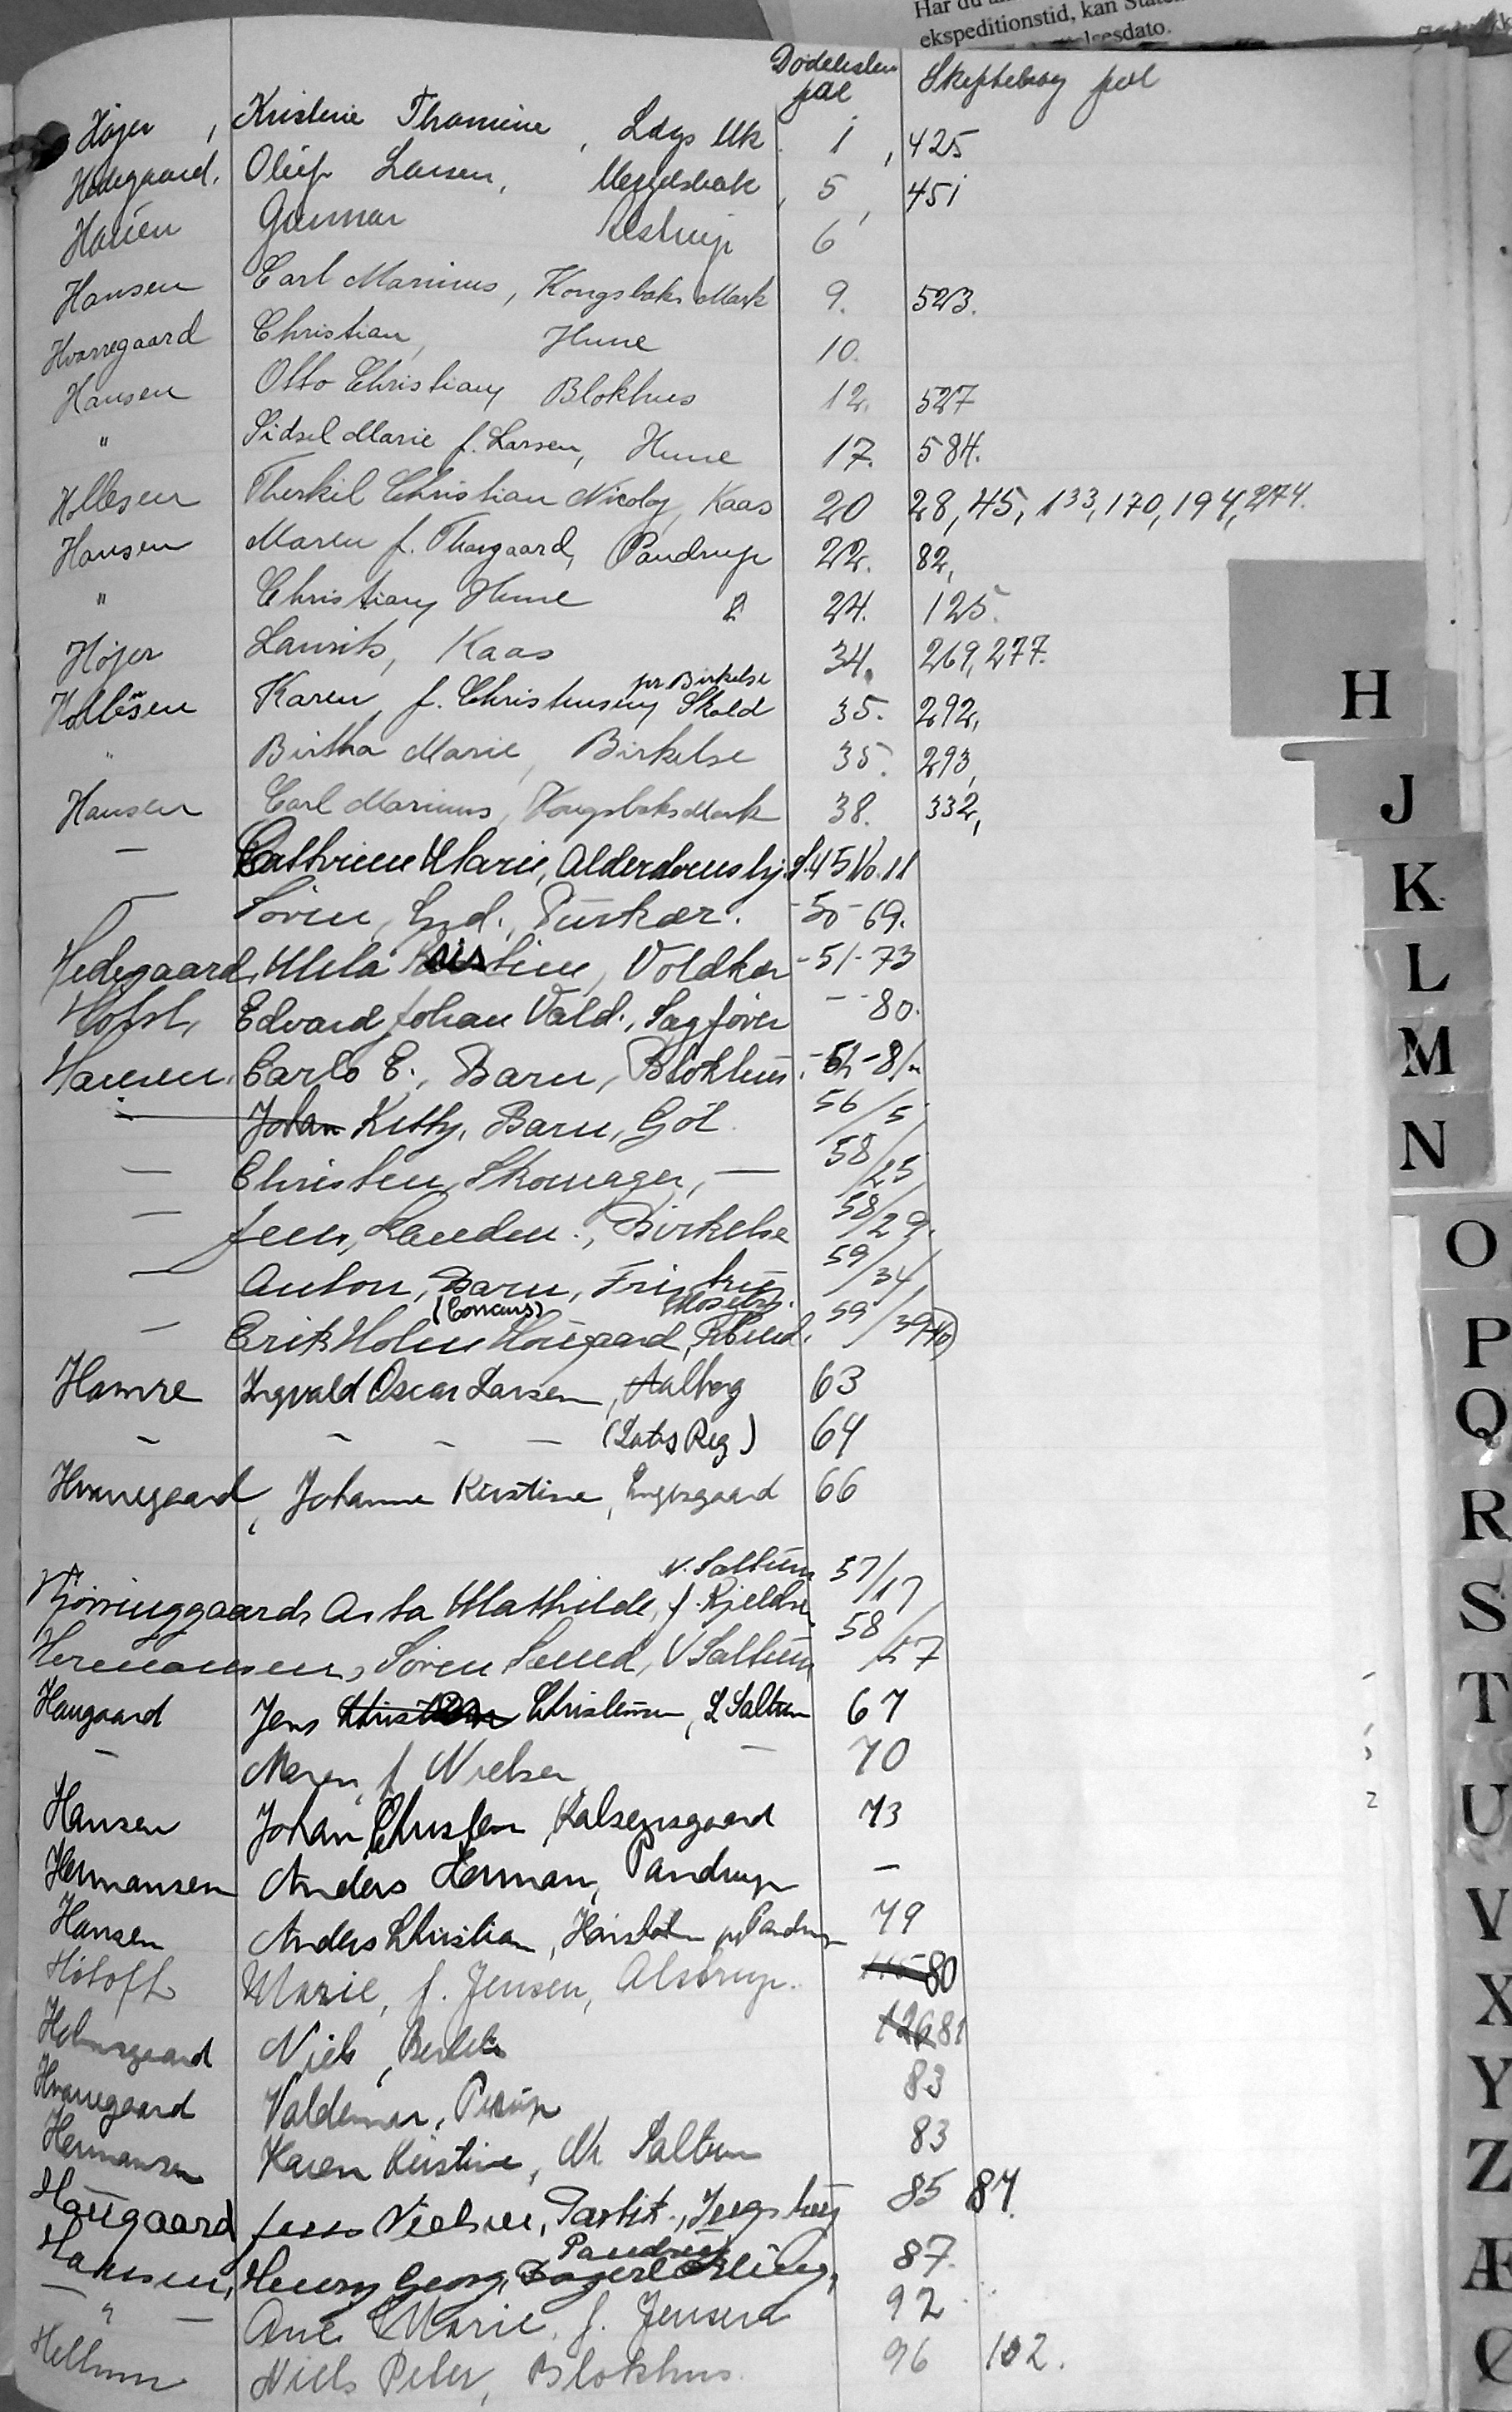 Har du
ekspeditionstid, kan
Dødelisten pag Skiftebog pag
Højer, Kristine Thomine, Ldgs Mk 1, 425
Hedegaard, Oluf Larsen, 5, 451
Hansen Gunnar Aastrup 6
Hansen Carl Marinus, Kongsbaks Mark 9. 523.
Hvarregaard Christian, Hune 10.
Hansen Otto Christian, Blokhus 12. 527
" Sidsel Marie f. Larsen, Hune 17. 584.
Hollesen Therkil Christian Nicolaj, Kaas 20 28, 45, 133, 170, 194, 274.
Hansen Maren f. Thorgaard, Pandrup 22. 82,
" Christian, Hune 24. 125.
Højer Laurits, Kaas 34. 269, 277.
pr. Birkelse
Hollesen Karen f. Christensen, Skold 35. 292,
" Birtha Marie, Birkelse 35. 293,
Hansen Carl Marinus, Kongsbaks Mark 38. 332,
— Cathrine Marie, Alderdomshj. S. 45 No. 11
— Søren, Grd., Purkær. - 50 - 69.
Hedegaard, Kristine, Voldkær - 51 - 73
Holst, Edvard Johan Vald., Sagfører - - 80.
Hansen, Carlo E., Barn, Blokhus,
— Johan Ketty, Barn, Gøl. 56/5
— Christen, Skomager, — 58/25
— Jens, Landm., Birkelse 58/29.
— Anton, Barn, Fristrup 59/34
(Concurs) Moseby.
— Erik Holm Hougaard, 59/39(40)
Hamre Ingvald Oscar Larsen, Aalborg 63
- - - - (Dats Reg) 64
Hvarregaard, Johanne Kirstine, Engesgaard 66
N. Saltum 57/17
Hjørringgaard, Asta Mathilde, f. Kjeldsen
Hermansen, Søren Smed, V Saltum, 58/57
Haugaard Jens Christian Christensen, S Saltum 67
— Maren, f Nielsen — 70
Hansen Johan Christen, Kalsensgaard 73
Hermansen Anders Herman, Pandrup —
Hansen Anders Christian, pr Pandrup 79
Hostoft Marie, f. Jensen, Alstrup. 115 80
Holmsgaard Niels, 126 81
Hvarregaard Valdemar, 83
Hermansen Karen Kirstine, Nr Saltum 83
Haugaard Jens Nielsen, Partik., Ingstrup 85 87.
Pandrup
Hansen, Henry Georg, 87.
— " — Ane Marie, f. Jensen 92
Hellum Niels Peter, Blokhus. 96 102.
H
J
K
L
M
N
O
P
Q
R
S
T
U
V
X
Y
Z
Æ
Ø